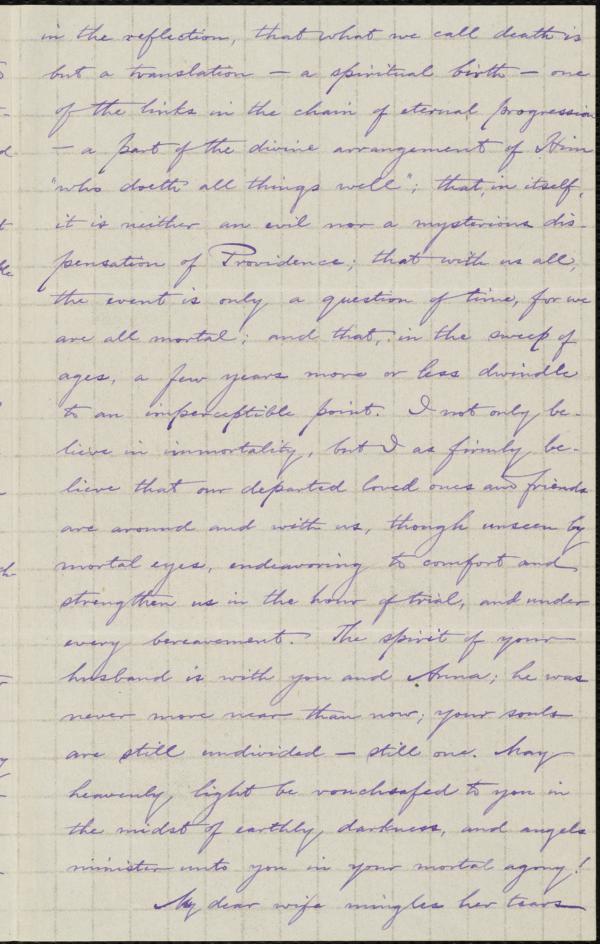 in the reflection, that what we call death is
but a translation — a spiritual birth — one
of the links in the chain of eternal progression
— a part of the divine arrangement of Him
"who doeth all things well"; that, in itself,
it is neither an evil nor a mysterious dis-
pensation of Providence; that with us all,
the event is only a question of time, for we
are all mortal; and that, in the sweep of
ages, a few years more or less dwindle
to an imperceptible point. I not only be-
lieve in immortality, but I as firmly be-
lieve that our departed loved ones and friends
are around and with us, though unseen by
mortal eyes, endeavoring to comfort and
strengthen us in the hour of trial, and under
every bereavement. The spirit of your
husband is with you and Anna; he was
never more near than now; your souls
are still undivided — still one. May
heavenly light be vouchsafed to you in
the midst of earthly darkness, and angels
minister unto you in your mortal agony!
My dear wife mingles her tears